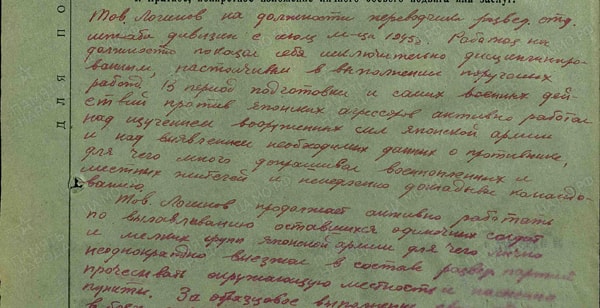 I. Краткое, конкретное изложение личного боевого подвига или заслуг.
ДЛЯ ПО
Тов. Логинов на должности переводчика развед. отд.
штаба дивизии с июля м-ца 1945г. Работая на
должности показал себя исключительно дисциплиниро-
ванным, настойчивым в выполнении порученых
работ. В период подготовки и самих военных дей-
ствий против японских агрессоров активно работал
над изучением вооруженных сил японской армии
и над выявлением необходимых данных о противнике,
для чего много допрашивал военнопленных и
местных жителей и немедленно докладывал командо-
ванию.
Тов. Логинов продолжает активно работать
по вылавливанию оставшихся одиночных солдат
и мелких групп японской армии для чего лично
неоднократно выезжал в составе развед. партий
прочесывать окружающую местность и населен.
пункты. За образцовое выполнение